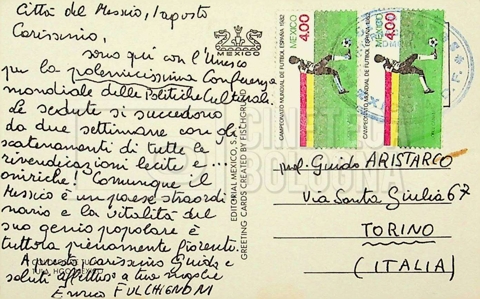 Città del Messico, 1 agosto
Carissimo,
sono qui con l'Unesco
per la polemicissima Conferenza
mondiale delle Politiche Culturali.
Le sedute si succedono
da due settimane con gli
scatenamenti di tutte le
rivendicazioni lecite e ...
oniriche! Comunque il
Messico è un paese straordi
nario e la vitalità del
suo genio popolare è
tuttora pienamente fiorente.
A presto carissimo Guido e
saluti affettuosi a tua moglie
Enrico FULCHIGNONI
MEXICO
EDITORIAL MEXICO, S.A.
GREETING CARDS CREATED BY FISCHGRUND
CAMPEONATO MUNDIAL DE FUTBOL ESPAÑA 1982
MEXICO
4.00
CAMPEONATO MUNDIAL DE FUTBOL ESPAÑA 1982
MEXICO
4.00
prof. Guido ARISTARCO
Via Santa Giulia 67
TORINO
(ITALIA)
CINETECA
BOLOGNA